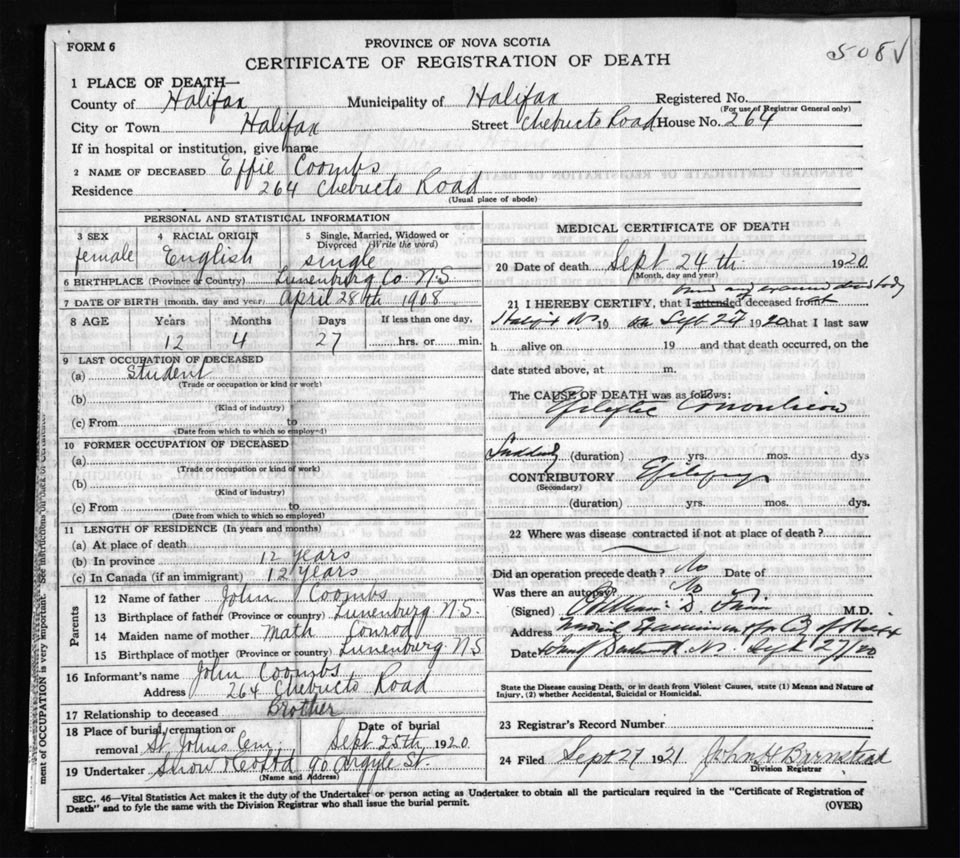 FORM 6
PROVINCE OF NOVA SCOTIA
508 √
CERTIFICATE OF REGISTRATION OF DEATH
1 PLACE OF DEATH—
County of Halifax Municipality of Halifax Registered No.
(For use of Registrar General only)
City or Town Halifax Street Chebucto Road House No. 264
If in hospital or institution, give name
2 NAME OF DECEASED Effie Coombs
Residence 264 Chebucto Road
(Usual place of abode)
PERSONAL AND STATISTICAL INFORMATION
3 SEX 4 RACIAL ORIGIN 5 Single, Married, Widowed or Divorced (Write the word)
female English single
6 BIRTHPLACE (Province or Country) Lunenburg Co N.S
7 DATE OF BIRTH (month, day and year) April 28th 1908
8 AGE Years Months Days If less than one day,
12 4 27 hrs. or min.
9 LAST OCCUPATION OF DECEASED
(a) Student
(Trade or occupation or kind of work)
(b)
(Kind of industry)
(c) From to
(Date from which to which so employed)
10 FORMER OCCUPATION OF DECEASED
(a)
(Trade or occupation or kind of work)
(b)
(Kind of industry)
(c) From to
(Date from which to which so employed)
11 LENGTH OF RESIDENCE (In years and months)
(a) At place of death
(b) In province 12 years
(c) In Canada (if an immigrant) 12 years
Parents
12 Name of father John Coombs
13 Birthplace of father (Province or country) Lunenburg N.S.
14 Maiden name of mother Math Conrod
15 Birthplace of mother (Province or country) Lunenburg N S
16 Informant's name John Coombs
Address 264 Chebucto Road
17 Relationship to deceased Brother
18 Place of burial, cremation or removal St Johns Cem. Date of burial Sept 25th 1920
19 Undertaker Snow & Co Ltd 90 Argyle St.
(Name and Address)
MEDICAL CERTIFICATE OF DEATH
20 Date of death Sept 24th 1920
(Month, day and year)
found and examined dead body
21 I HEREBY CERTIFY, that I attended deceased from
19 on Sept 27 1920 that I last saw
h alive on 19 and that death occurred, on the
date stated above, at m.
The CAUSE OF DEATH was as follows:
Epileptic Convulsion
Suddenly (duration) yrs. mos. dys
CONTRIBUTORY Epilepsy
(Secondary)
(duration) yrs. mos. dys.
22 Where was disease contracted if not at place of death?
Did an operation precede death? No Date of
Was there an autopsy? No
(Signed) William D. Finn M.D.
Address Medical Examiner for
Date Sept 27/20
State the Disease causing Death, or in death from Violent Causes, state (1) Means and Nature of Injury, (2) whether Accidental, Suicidal or Homicidal.
23 Registrar's Record Number
24 Filed Sept 27 1921 John H Barnstead
Division Registrar
SEC. 46—Vital Statistics Act makes it the duty of the Undertaker or person acting as Undertaker to obtain all the particulars required in the "Certificate of Registration of
Death" and to fyle the same with the Division Registrar who shall issue the burial permit. (OVER)
ment of OCCUPATION is very important. See instructions on back of certificate.